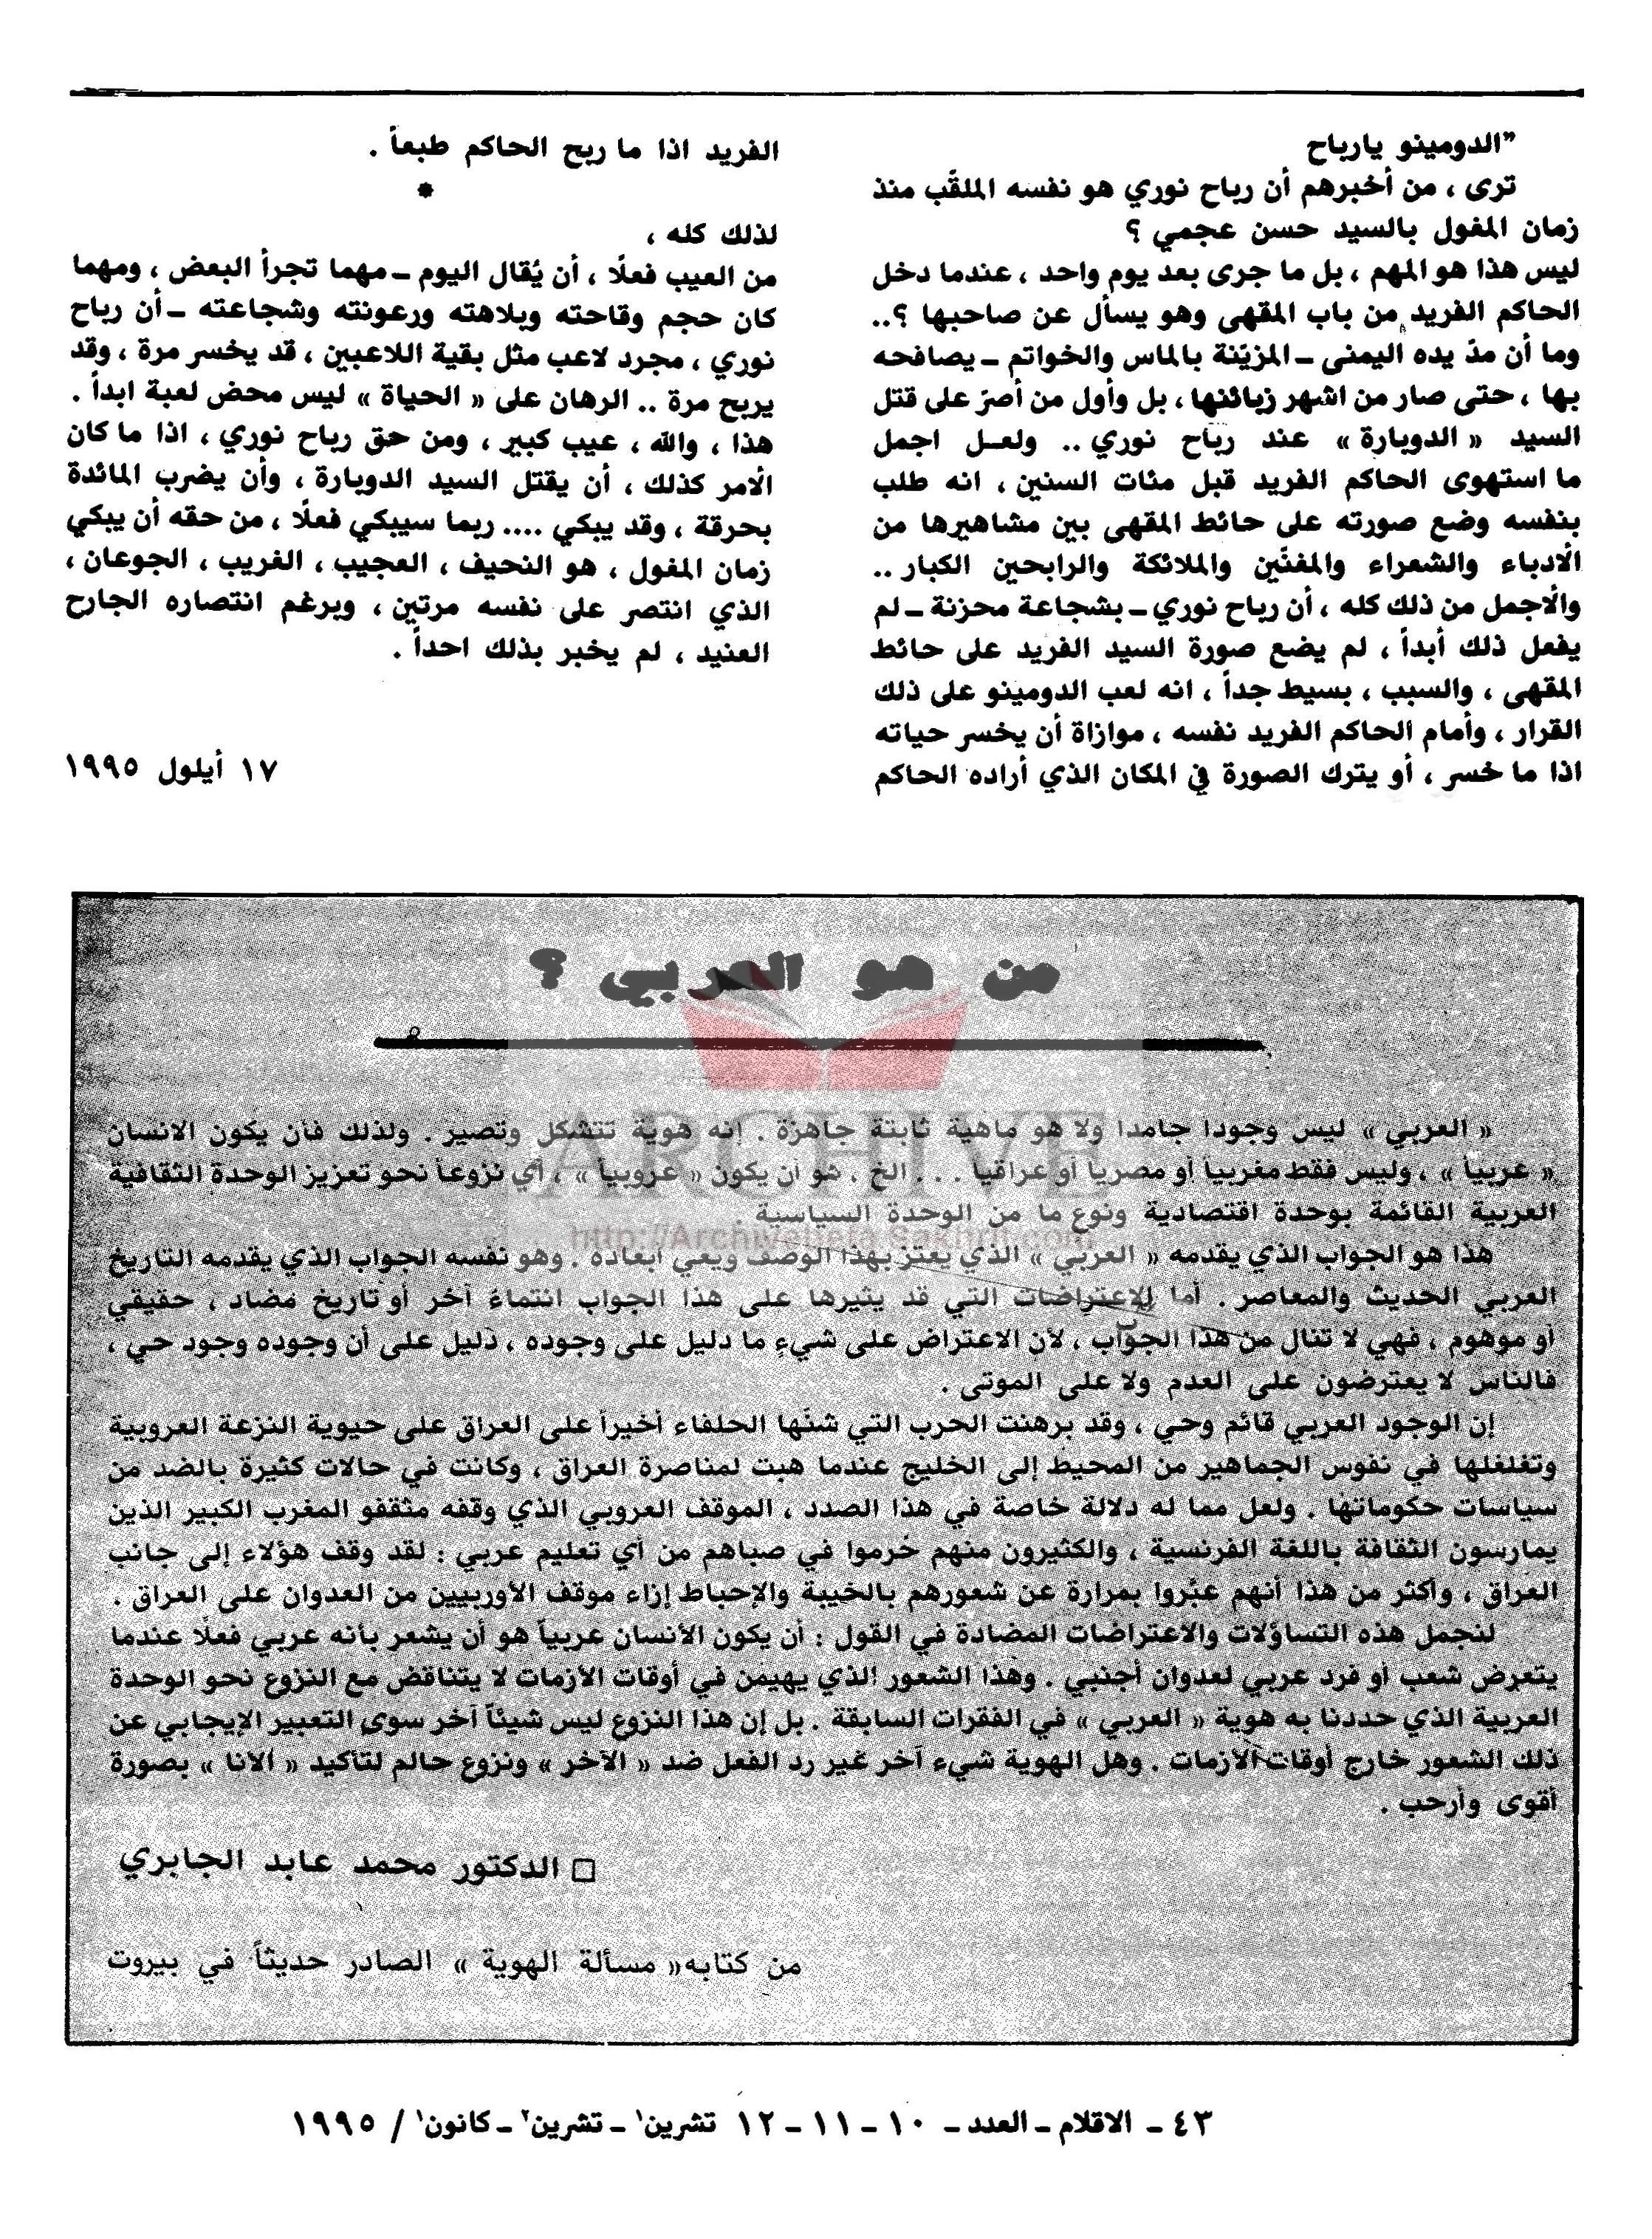 "الدومينو يارباح
ترى ، من أخبرهم أن رباح نوري هو نفسه الملقّب منذ
زمان المغول بالسيد حسن عجمي ؟
ليس هذا هو المهم ، بل ما جرى بعد يوم واحد ، عندما دخل
الحاكم الفريد من باب المقهى وهو يسأل عن صاحبها ؟..
وما أن مدّ يده اليمنى ــ المزيّنة بالماس والخواتم ــ يصافحه
بها ، حتى صار من اشهر زبائنها ، بل وأول من أصرّ على قتل
السيد « الدوبارة » عند رباح نوري .. ولعل اجمل
ما استهوى الحاكم الفريد قبل مئات السنين ، انه طلب
بنفسه وضع صورته على حائط المقهى بين مشاهيرها من
الأدباء والشعراء والمغنّين والملائكة والرابحين الكبار ..
والأجمل من ذلك كله ، أن رباح نوري ــ بشجاعة محزنة ــ لم
يفعل ذلك أبداً ، لم يضع صورة السيد الفريد على حائط
المقهى ، والسبب ، بسيط جداً ، انه لعب الدومينو على ذلك
القرار ، وأمام الحاكم الفريد نفسه ، موازاة أن يخسر حياته
اذا ما خسر ، أو يترك الصورة في المكان الذي أراده الحاكم
الفريد اذا ما ربح الحاكم طبعاً .
*
لذلك كله ،
من العيب فعلًا ، أن يُقال اليوم ــ مهما تجرأ البعض ، ومهما
كان حجم وقاحته وبلاهته ورعونته وشجاعته ــ أن رباح
نوري ، مجرد لاعب مثل بقية اللاعبين ، قد يخسر مرة ، وقد
يربح مرة .. الرهان على « الحياة » ليس محض لعبة ابداً .
هذا ، والله ، عيب كبير ، ومن حق رباح نوري ، اذا ما كان
الأمر كذلك ، أن يقتل السيد الدوبارة ، وأن يضرب المائدة
بحرقة ، وقد يبكي .... ربما سيبكي فعلًا ، من حقه أن يبكي
زمان المغول ، هو النحيف ، العجيب ، الغريب ، الجوعان ،
الذي انتصر على نفسه مرتين ، وبرغم انتصاره الجارح
العنيد ، لم يخبر بذلك احداً .
١٧ أيلول ١٩٩٥
من هو العربي ؟
« العربي » ليس وجوداً جامداً ولا هو ماهية ثابتة جاهزة . إنه هوية تتشكل وتصير . ولذلك فأن يكون الانسان
« عربياً » ، وليس فقط مغربياً أو مصرياً أو عراقياً . . . الخ ، هو أن يكون « عروبياً » ، أي نزوعاً نحو تعزيز الوحدة الثقافية
العربية القائمة بوحدة اقتصادية ونوع ما من الوحدة السياسية
هذا هو الجواب الذي يقدمه « العربي » الذي يعتز بهذا الوصف ويعي أبعاده . وهو نفسه الجواب الذي يقدمه التاريخ
العربي الحديث والمعاصر . أما الاعتراضات التي قد يثيرها على هذا الجواب انتماءٌ آخر أو تاريخ مضاد ، حقيقي
أو موهوم ، فهي لا تنال من هذا الجواب ، لأن الاعتراض على شيءٍ ما دليل على وجوده ، دليل على أن وجوده وجود حي ،
فالناس لا يعترضون على العدم ولا على الموتى .
إن الوجود العربي قائم وحي ، وقد برهنت الحرب التي شنّها الحلفاء أخيراً على العراق على حيوية النزعة العروبية
وتغلغلها في نفوس الجماهير من المحيط إلى الخليج عندما هبت لمناصرة العراق ، وكانت في حالات كثيرة بالضد من
سياسات حكوماتها . ولعل مما له دلالة خاصة في هذا الصدد ، الموقف العروبي الذي وقفه مثقفو المغرب الكبير الذين
يمارسون الثقافة باللغة الفرنسية ، والكثيرون منهم حُرموا في صباهم من أي تعليم عربي : لقد وقف هؤلاء إلى جانب
العراق ، وأكثر من هذا أنهم عبّروا بمرارة عن شعورهم بالخيبة والإحباط إزاء موقف الأوربيين من العدوان على العراق .
لنجمل هذه التساؤلات والاعتراضات المضادة في القول : أن يكون الأنسان عربياً هو أن يشعر بأنه عربي فعلًا عندما
يتعرض شعب أو فرد عربي لعدوان أجنبي . وهذا الشعور الذي يهيمن في أوقات الأزمات لا يتناقض مع النزوع نحو الوحدة
العربية الذي حددنا به هوية « العربي » في الفقرات السابقة . بل إن هذا النزوع ليس شيئاً آخر سوى التعبير الإيجابي عن
ذلك الشعور خارج أوقات الأزمات . وهل الهوية شيء آخر غير رد الفعل ضد « الآخر » ونزوع حالم لتأكيد « الأنا » بصورة
أقوى وأرحب .
□ الدكتور محمد عابد الجابري
من كتابه « مسألة الهوية » الصادر حديثاً في بيروت
ARCHIVE
http://Archivebeta.Sakhrit.com
٤٣ ــ الاقلام ــ العدد ــ ١٠ ــ ١١ ــ ١٢ تشرين١ ــ تشرين٢ ــ كانون١ / ١٩٩٥